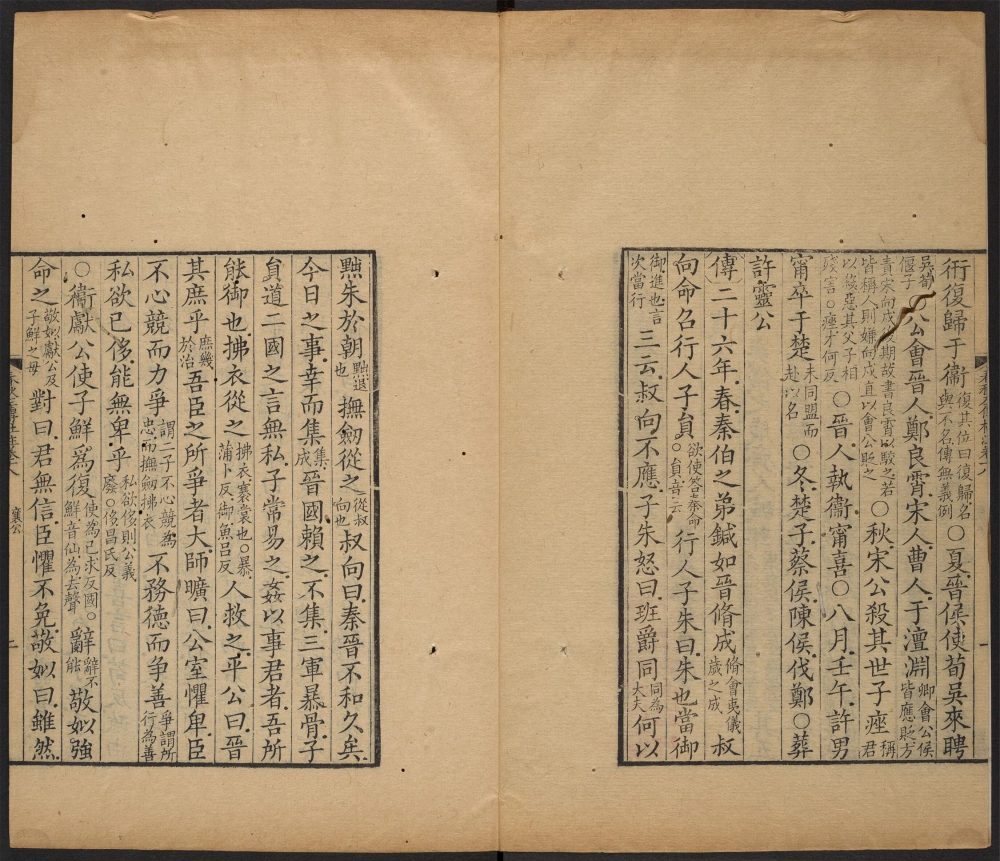 衎復歸于衞復其位曰復歸名與不名傳無義例○夏晉侯使荀吳來聘
吳荀偃子○公會晉人鄭良霄宋人曹人于澶淵卿會公侯皆應貶方
責宋向戌後期故書良霄以駮之若皆稱人則嫌向戌直以會公貶之○秋宋公殺其世子痤稱君
以殺惡其父子相殘害○痤才何反○晉人執衞甯喜○八月壬午許男
甯卒于楚未同盟而赴以名○冬楚子蔡侯陳侯伐鄭○葬
許靈公
傳二十六年春秦伯之弟鍼如晉脩成脩會夷儀歲之成叔
向命召行人子員欲使答秦命○員音云行人子朱曰朱也當御
御進也言次當行三云叔向不應子朱怒曰班爵同同為大夫何以
黜朱於朝黜退也撫劒從之從叔向也叔向曰秦晉不和久矣
今日之事幸而集集成晉國賴之不集三軍暴骨子
員道二國之言無私子常易之姦以事君者吾所
能御也拂衣從之拂衣褰裳也○暴蒲卜反御魚呂反人救之平公曰晉
其庶乎庶幾於治吾臣之所爭者大師曠曰公室懼卑臣
不心競而力爭謂二子不心競為忠而撫劒拂衣不務德而爭善爭謂所行為善
私欲已侈能無卑乎私欲侈則公義廢○侈昌氏反
○衞獻公使子鮮為復使為己求反國○鮮音仙為去聲辭辭不能敬姒強
命之敬姒獻公及子鮮之母對曰君無信臣懼不免敬姒曰雖然
襄公